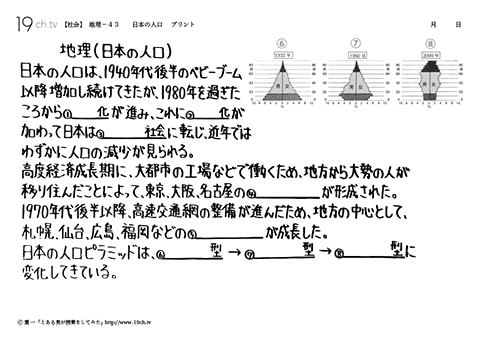 19ch.tv 【社会】 地理－43 日本の人口 プリント 月 日
地理(日本の人口)
⑥ ⑦ ⑧
1935年 1960年 2009年
男 女 男 女 男 女
日本の人口は、1940年代後半のベビーブーム
以降増加し続けてきたが、1980年を過ぎた
ころから① 化が進み、これに② 化が
加わって日本は③ 社会に転じ、近年では
わずかに人口の減少が見られる。
高度経済成長期に、大都市の工場などで働くため、地方から大勢の人が
移り住んだことによって、東京、大阪、名古屋の④ が形成された。
1970年代後半以降、高速交通網の整備が進んだため、地方の中心として、
札幌、仙台、広島、福岡などの⑤ が成長した。
日本の人口ピラミッドは、⑥ 型 → ⑦ 型 → ⑧ 型 に
変化してきている。
Ⓒ 葉一「とある男が授業をしてみた」http://www.19ch.tv